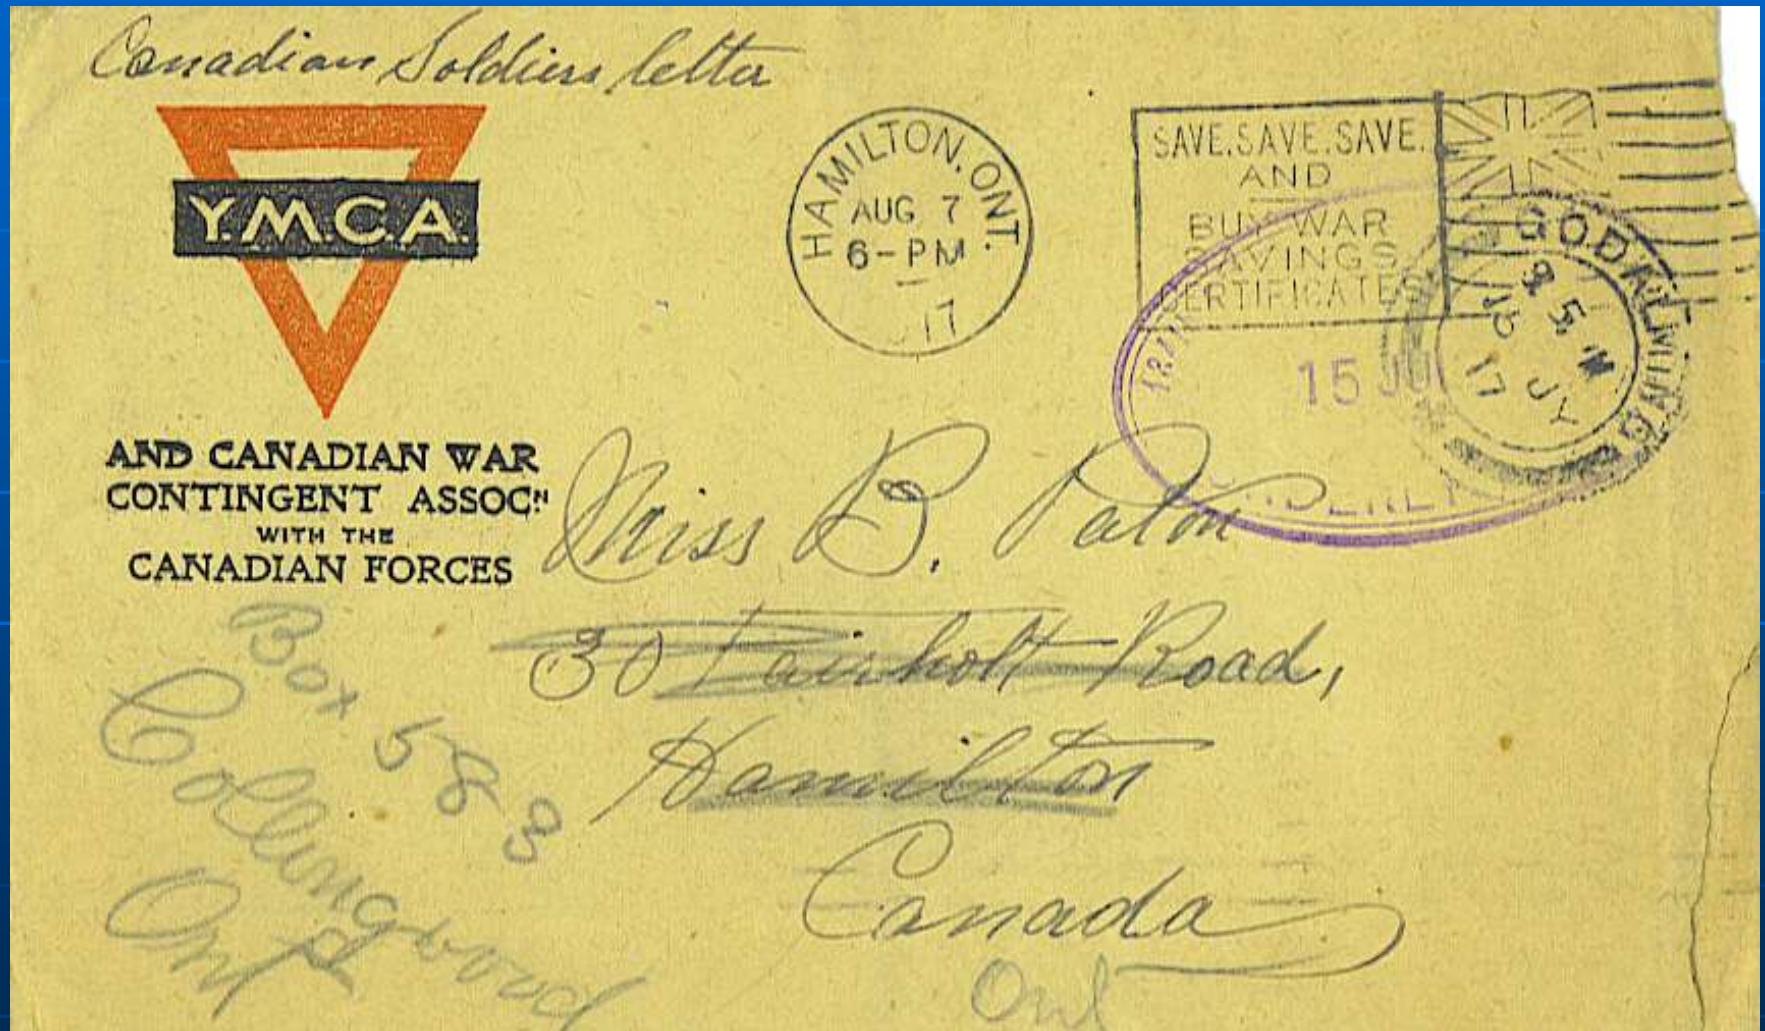 Canadian Soldiers letter
Y.M.C.A.
AND CANADIAN WAR
CONTINGENT ASSOCN
WITH THE
CANADIAN FORCES
HAMILTON, ONT.
AUG 7
6-PM
17
SAVE. SAVE. SAVE.
AND
BUY WAR
SAVINGS
CERTIFICATES
GODALMING
5
15 JY
17
15 JU
Miss B. Paton
30 Fairholt Road,
Hamilton
Canada
Ont
Box 583
Collingwood
Ont